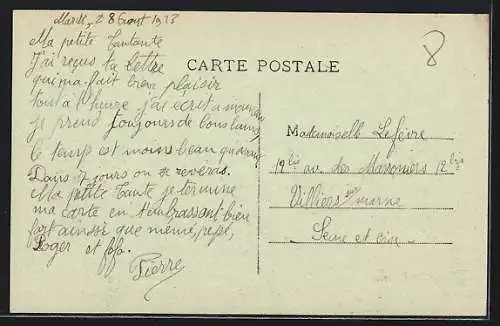 Mardi, 28 Aout 1923
Ma petite Tantante
J'ai reçus ta lettre
qui m'a fait bien plaisir
tout à l'heure j'ai écrit a
je prend toujours de bons bains
le temps est moins beau
Dans 7 jours on se reveras.
Ma petite tante je termine
ma carte en t'embrassant bien
fort ainsie que mémé, pépé,
Roger et fofo.
Pierre
CARTE POSTALE
8
Mademoiselle Lefèvre
12bis av. des Maroniers 12bis
Villiers sur marne
Seine et Oise